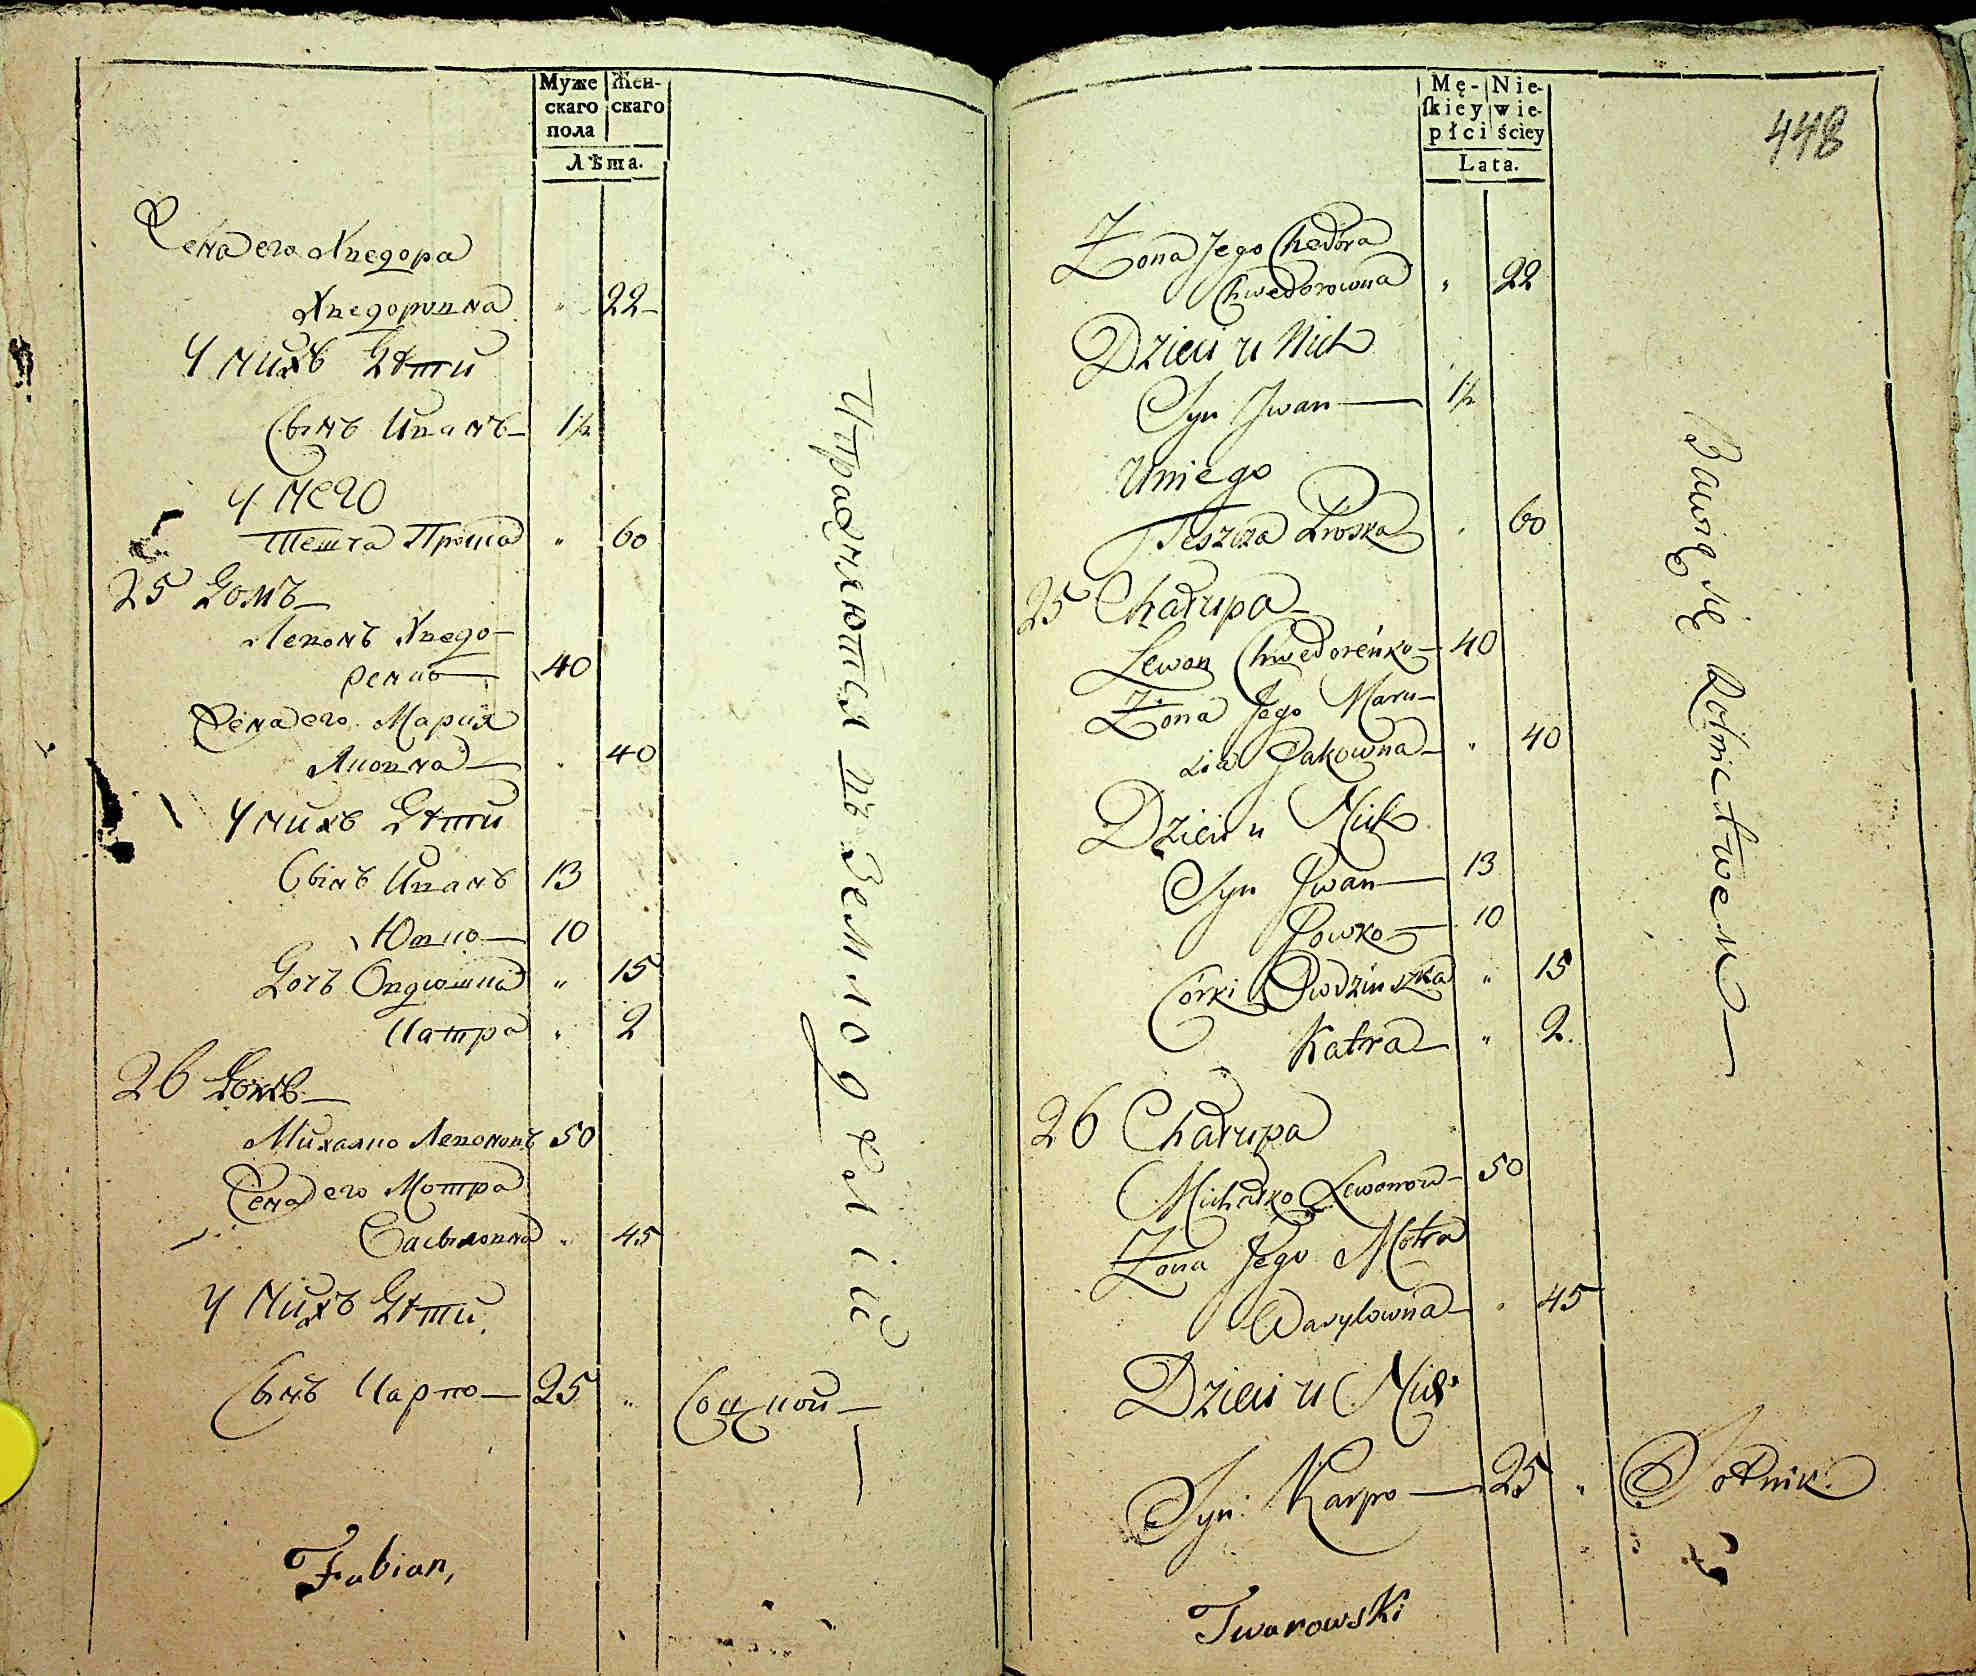 Муже Жен-
скаго скаго
пола
Лѣта.
Жена его Хведора
Хведоровна " 22
У нихъ Дѣти
Сынъ Иванъ 1½
У него
Тешча Проска " 60
25 Домъ
Левонъ Хведо-
ренко 40
Жена его Мария
Яковна " 40
У нихъ Дѣти
Сынъ Иванъ 13
Ювко 10
Дочъ Овдюшка " 15
Катра " 2
26 Домъ
Михалко Левоновъ 50
Жена его Мотра
Василовна " 45
У нихъ Дѣти
Сынъ Карпо 25 " Соцкой
Упражняются въ Земледѣліи
Fabian,
448
Mę- Nie-
ſkiey wie-
płci ściey
Lata.
Żona Jego Chedora
Chwedorowna " 22
Dzieci u Nich
Syn Jwan 1½
U niego
Teszcza Proska " 60
25 Chałupa
Lewon Chwedoreńko 40
Żona Jego Mary-
sia Jakowna " 40
Dzieci u Nich
Syn Jwan 13
Jowko 10
Córki Owdziuszka " 15
Katra " 2.
26 Chałupa
Michałko Lewonow 50
Żona Jego Motra
Wasylowna " 45
Dzieci u Nich
Syn Karpo 25 " Sotnik
Bawią się Rolnictwem
Twarowski